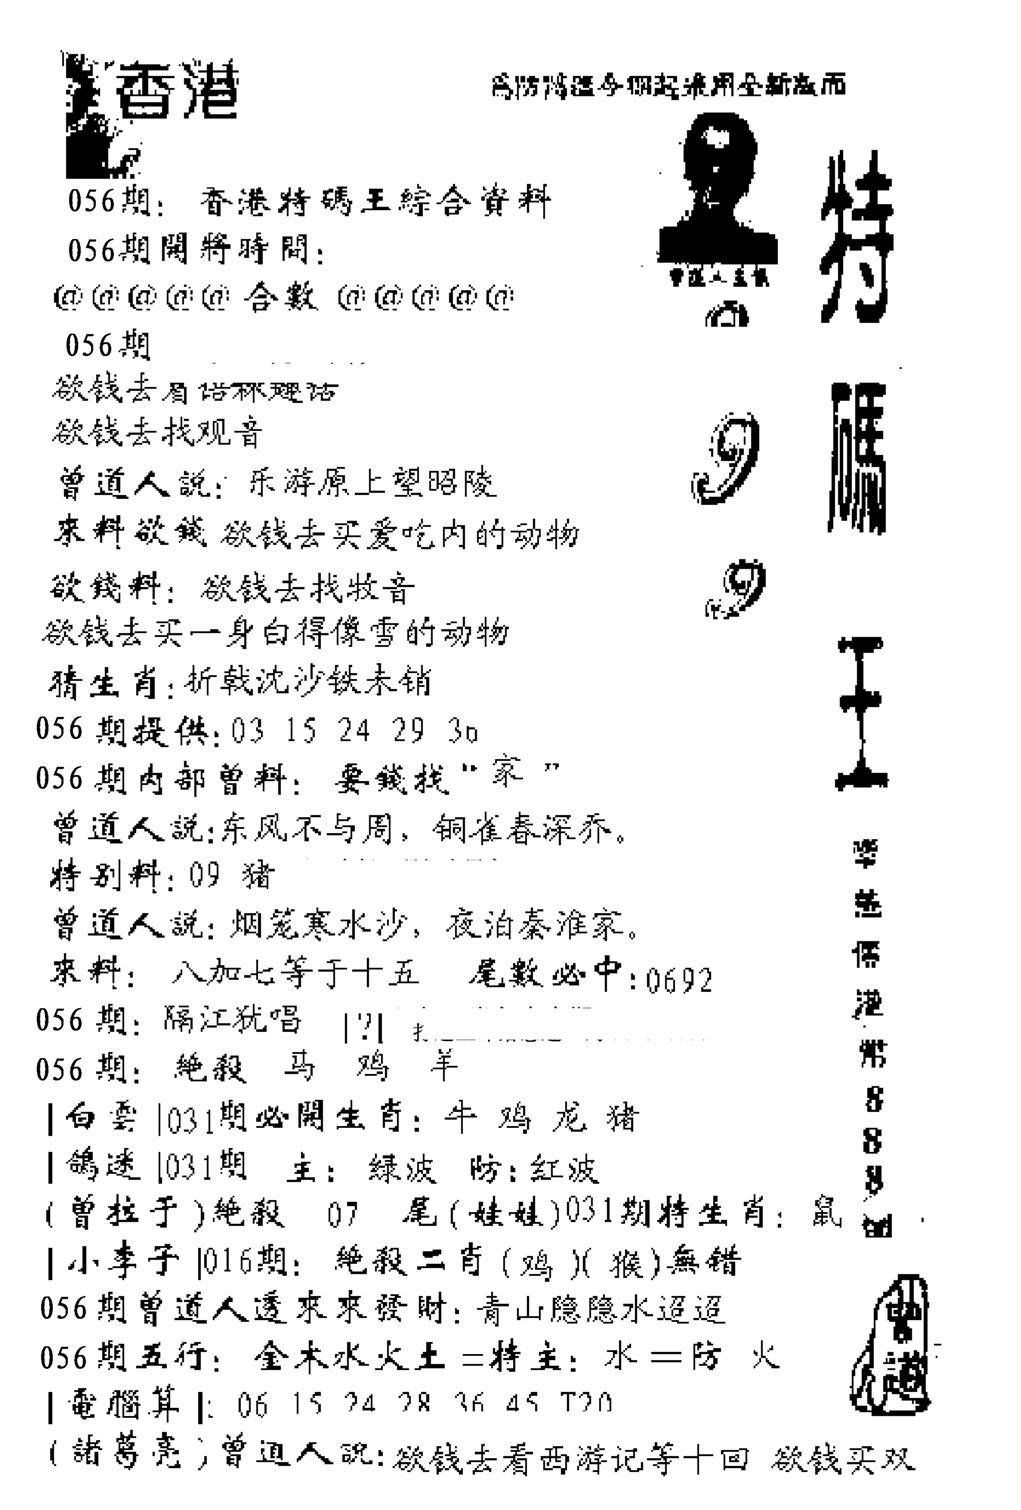 香港
爲防
056期：香港特碼王綜合資料
056期開將時間：
@@@@@合數@@@@@
056期
欲钱去
欲钱去找观音
曾道人説：乐游原上望昭陵
來料欲錢 欲钱去买爱吃内的动物
欲錢料：欲钱去找牧音
欲钱去买一身白得像雪的动物
猜生肖：折戟沈沙铁未销
056期提供：03 15 24 29 36
056期内部曾料：要錢找“家”
曾道人説：东风不与周，铜雀春深乔。
特别料：09 猪
曾道人説：烟笼寒水沙，夜泊秦淮家。
來料：八加七等于十五 尾數必中：0692
056期：隔江犹唱 |?|
056期：絶殺 马 鸡 羊
|白雲|031期必開生肖：牛 鸡 龙 猪
|鴿迷|031期 主：绿波 防：红波
(曾拉于)絶殺 07 尾(娃娃)031期特生肖：鼠
|小李子|016期：絶殺二肖(鸡)(猴)無錯
056期曾道人透來來發財：青山隐隐水迢迢
056期五行：金木水火土=特主：水=防 火
|電腦算|：06 15 24 28 36 45 T20
(諸葛亮)曾道人説：欲钱去看西游记等十回 欲钱买双
特碼王
9
9
港幣888